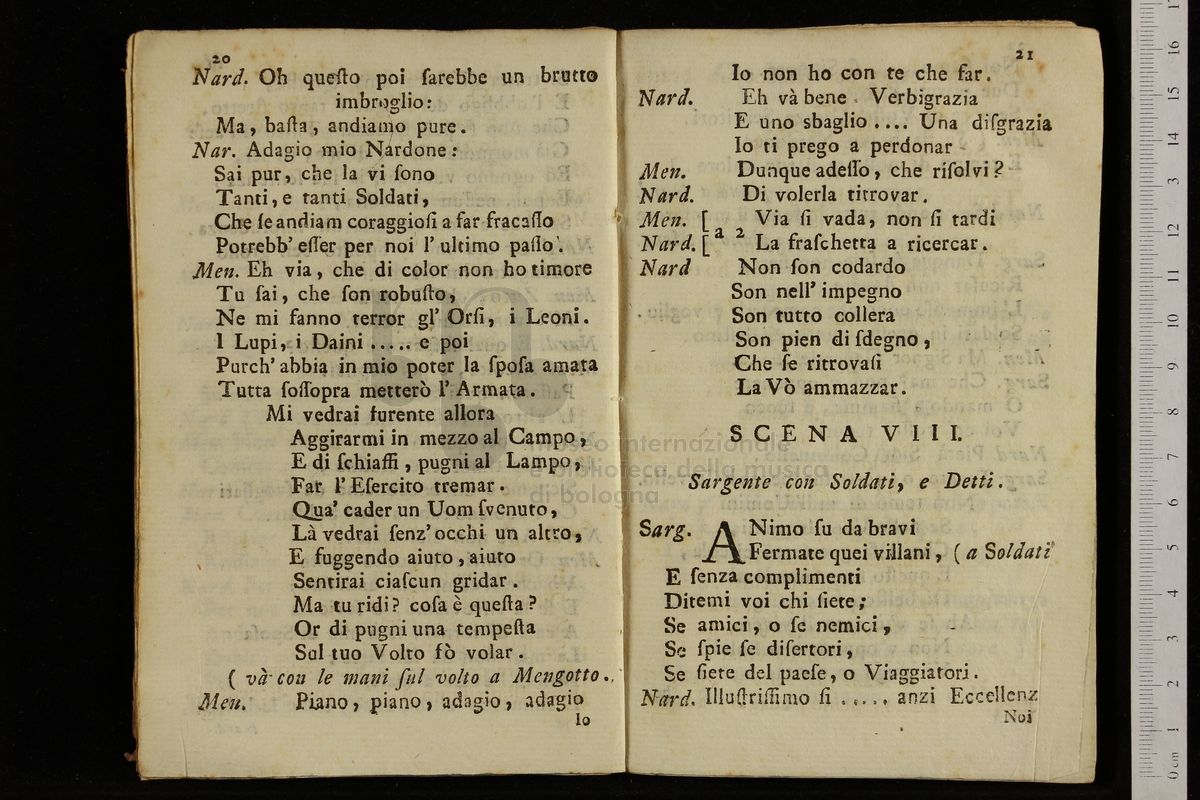 20
Nard. Oh queſto poi ſarebbe un brutto
imbroglio:
Ma, baſta, andiamo pure.
Nar. Adagio mio Nardone:
Sai pur, che la vi ſono
Tanti, e tanti Soldati,
Che ſe andiam coraggioſi a far fracaſſo
Potrebb' eſſer per noi l' ultimo paſſo.
Men. Eh via, che di color non ho timore
Tu ſai, che ſon robuſto,
Ne mi fanno terror gl' Orſi, i Leoni.
I Lupi, i Daini ..... e poi
Purch' abbia in mio poter la ſpoſa amata
Tutta ſoſſopra metterò l' Armata.
Mi vedrai furente allora
Aggirarmi in mezzo al Campo,
E di ſchiaffi, pugni al Lampo,
Far l' Eſercito tremar.
Qua' cader un Uom ſvenuto,
Là vedrai ſenz' occhi un altro,
E fuggendo aiuto, aiuto
Sentirai ciaſcun gridar.
Ma tu ridi? coſa è queſta?
Or di pugni una tempeſta
Sul tuo Volto fò volar.
( và con le mani ſul volto a Mengotto.
Men. Piano, piano, adagio, adagio
Io
21
Io non ho con te che far.
Nard. Eh và bene. Verbigrazia
E uno sbaglio .... Una diſgrazia
Io ti prego a perdonar
Men. Dunque adeſſo, che riſolvi?
Nard. Di volerla titrovar.
Men. [ Via ſi vada, non ſi tardi
a 2
Nard. [ La fraſchetta a ricercar.
Nard Non ſon codardo
Son nell' impegno
Son tutto collera
Son pien di ſdegno,
Che ſe ritrovaſi
La Vò ammazzar.
SCENA VIII.
Sargente con Soldati, e Detti.
Sarg. ANimo ſu da bravi
Fermate quei villani, ( a Soldati
E ſenza complimenti
Ditemi voi chi ſiete;
Se amici, o ſe nemici,
Se ſpie ſe diſertori,
Se ſiete del paeſe, o Viaggiatori.
Nard. Illuſtriſſimo ſi ..... anzi Eccellenz
Noi
museo internazionale
e biblioteca della musica
di bologna